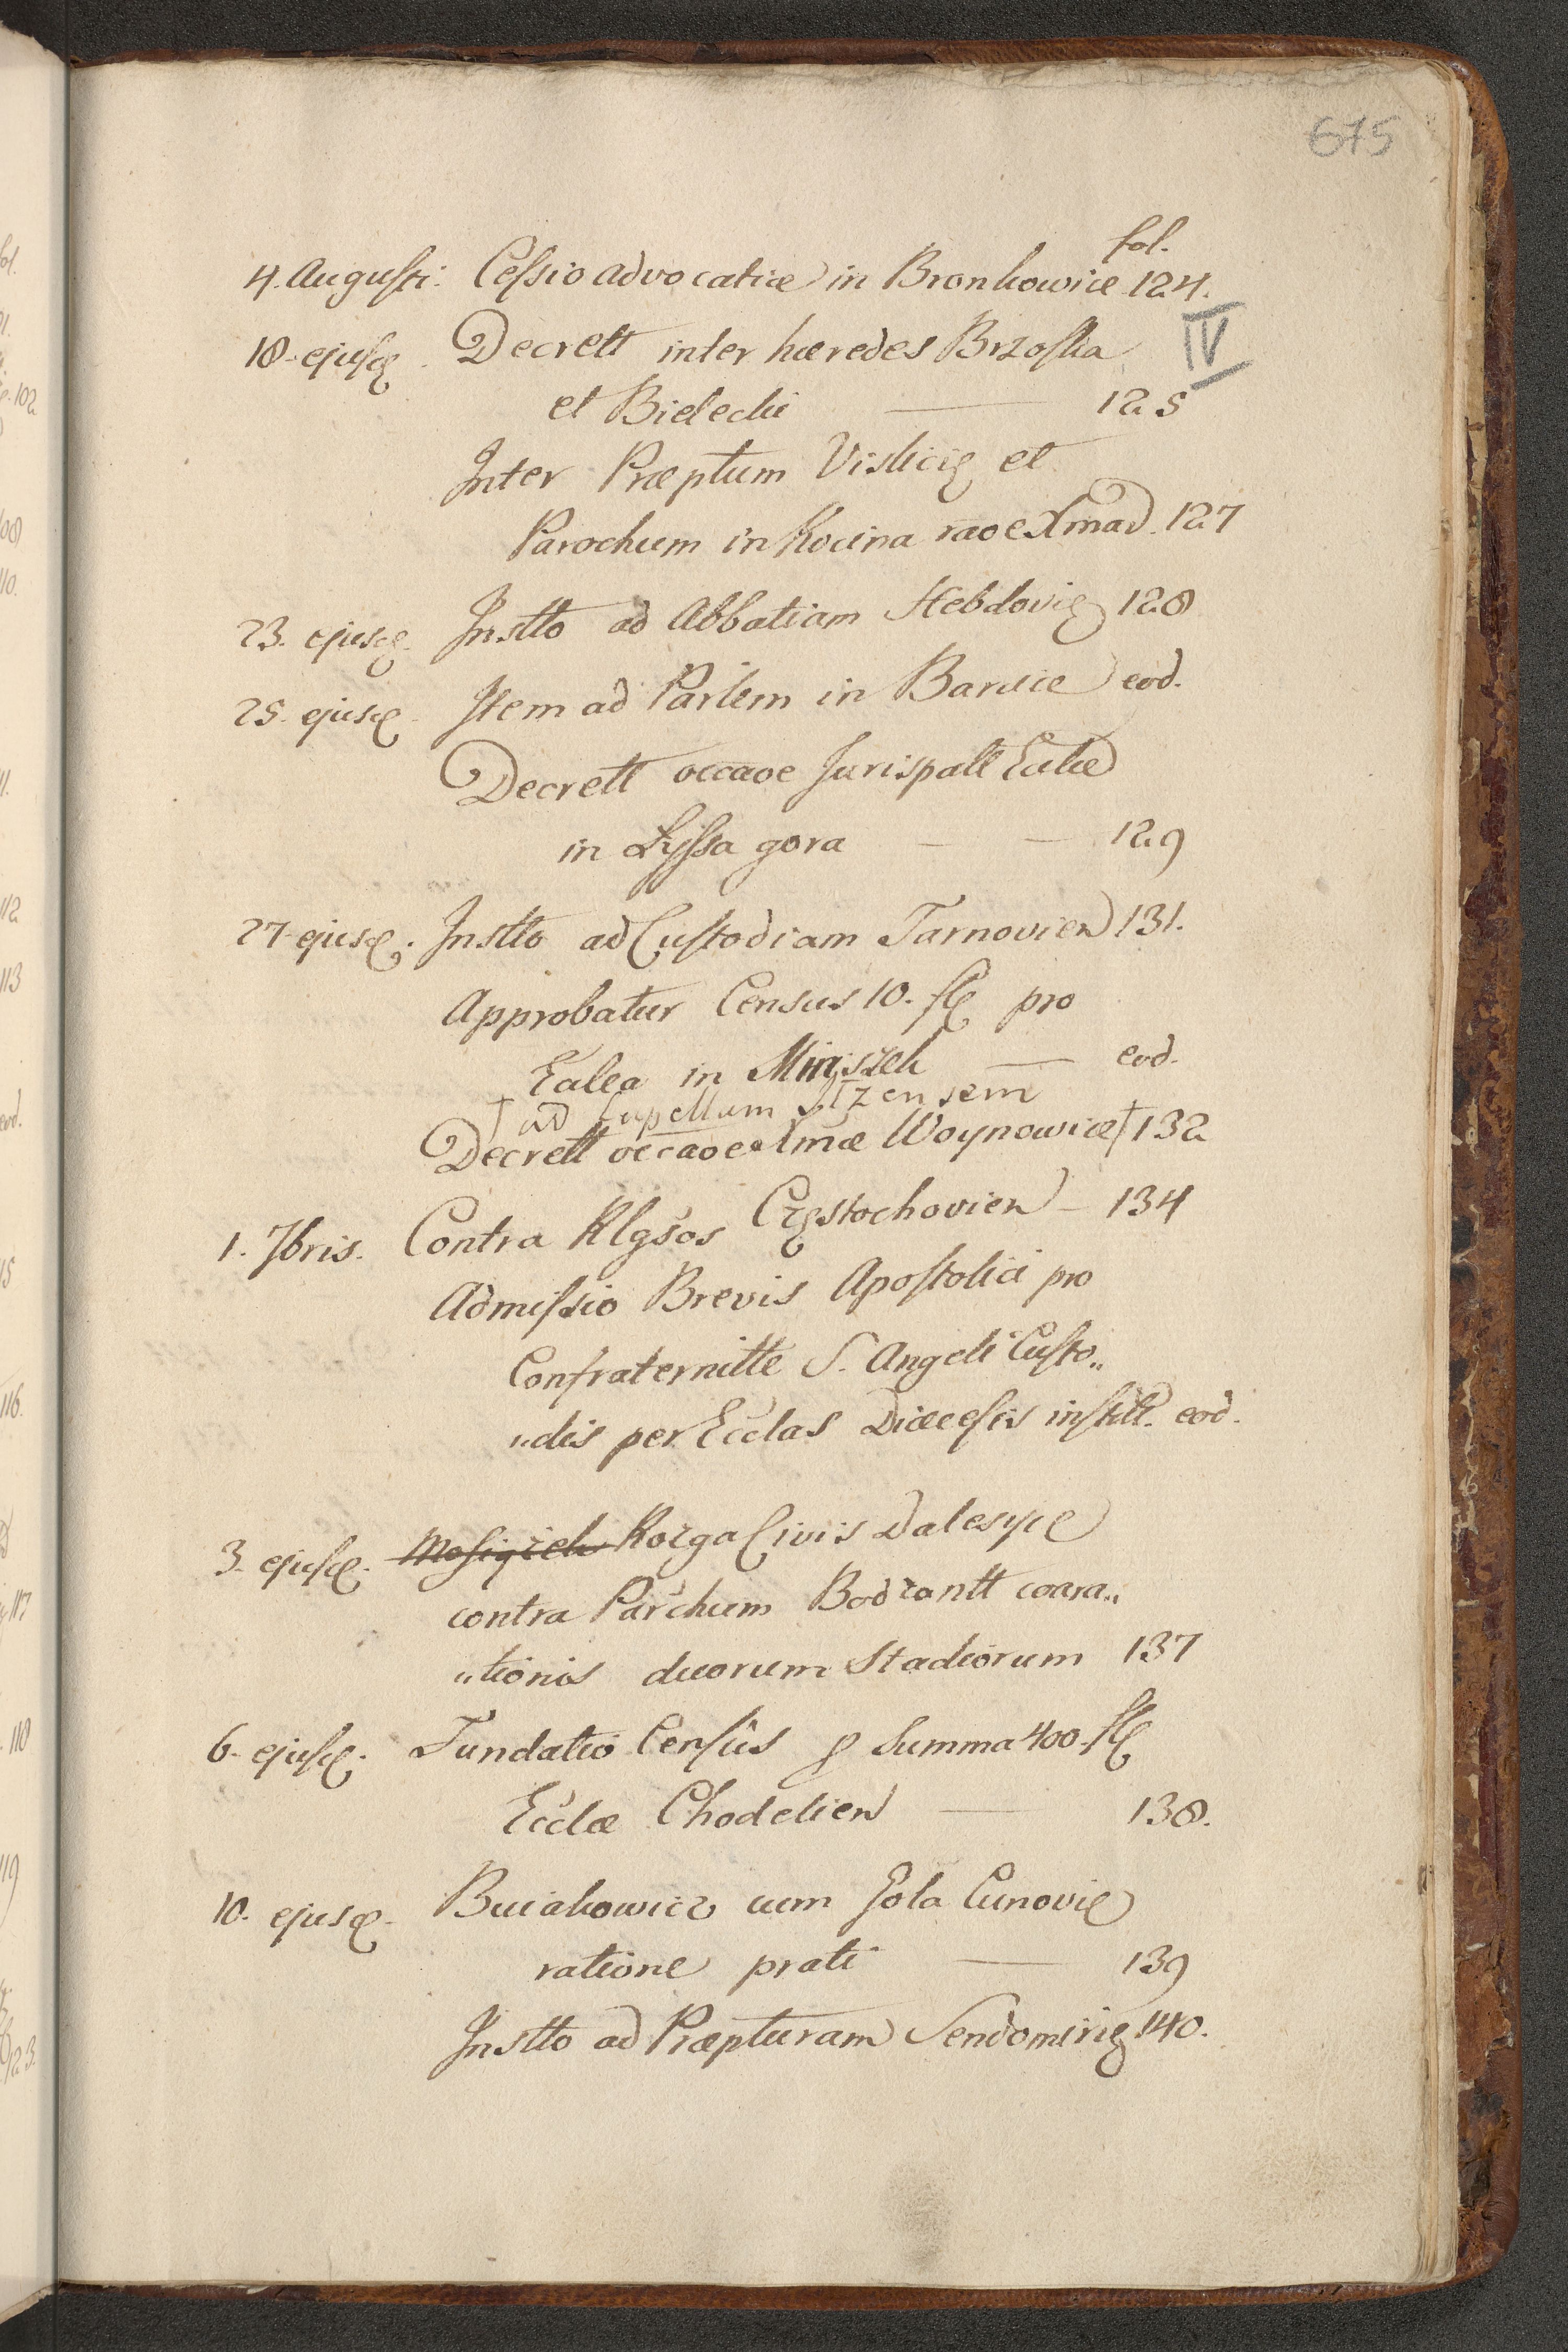 675
fol.
4. Augusti. Cessio advocatiæ in Bronkowice 124.
IV
18. ejusd. Decrett inter hæredes Brzoska
et Bielecki — 125
Inter Præptum Vislicię et
Parochum in Kocina raoe Xmad. 127
23. ejusd. Instto ad Abbatiam Hebdovię 128
25. ejusd. Item ad Parlem in Barwice eod.
Decrett occaoe Jurispatt Ealiæ
in Lyssa gora — — 129
27. ejusd. Instto ad Custodiam Tarnovien 131.
Approbatur Census 10. fl pro
Ealea in Miniszek — eod.
† ad Cupellum Szen sem
Decrett occaoe Xmæ Woynowice † 132
1. 7bris. Contra Rlgsos Częstochovien — 134
Admissio Brevis Apostolici pro
Confraternitte S. Angeli Custo„
„dis per Ecclas Diæcesis instit. eod.
3. ejusd. Kozga Civis Dalesyce
contra Parchum Bodzantt coara„
„tionis duorum Stadiorum 137
6. ejusd. Fundatio Censûs p Summa 400. fl
Ecclæ Chodelien — 138.
10. ejusd. Buiakowicz cum Jola Cunovię
ratione prati — 139
Instto ad Præpturam Sendomirię 140.